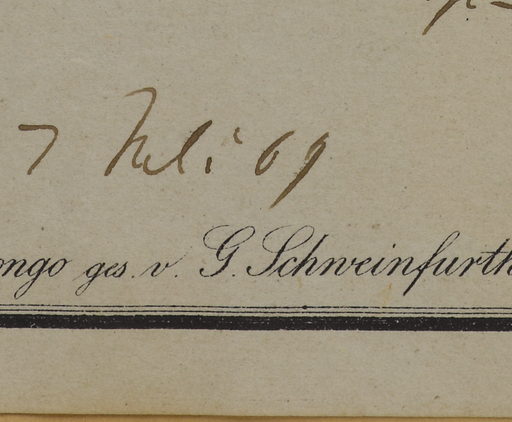 7 Juli 69
ongo ges. v. G. Schweinfurth